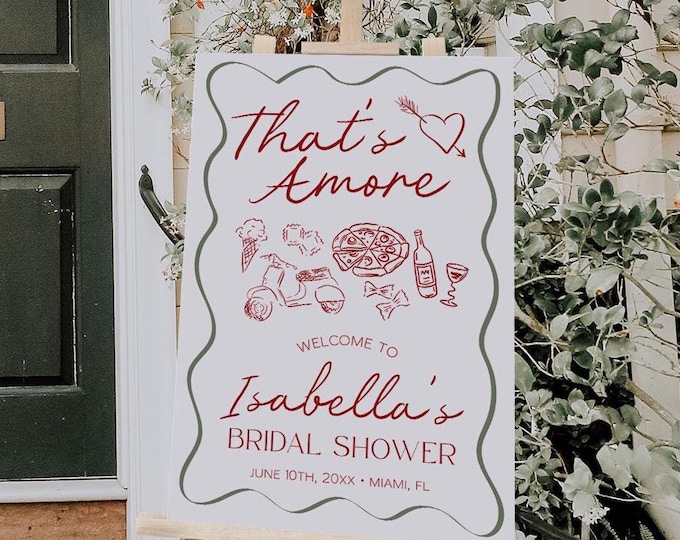 That's
Amore
WELCOME TO
Isabella's
BRIDAL SHOWER
JUNE 10TH, 20XX • MIAMI, FL